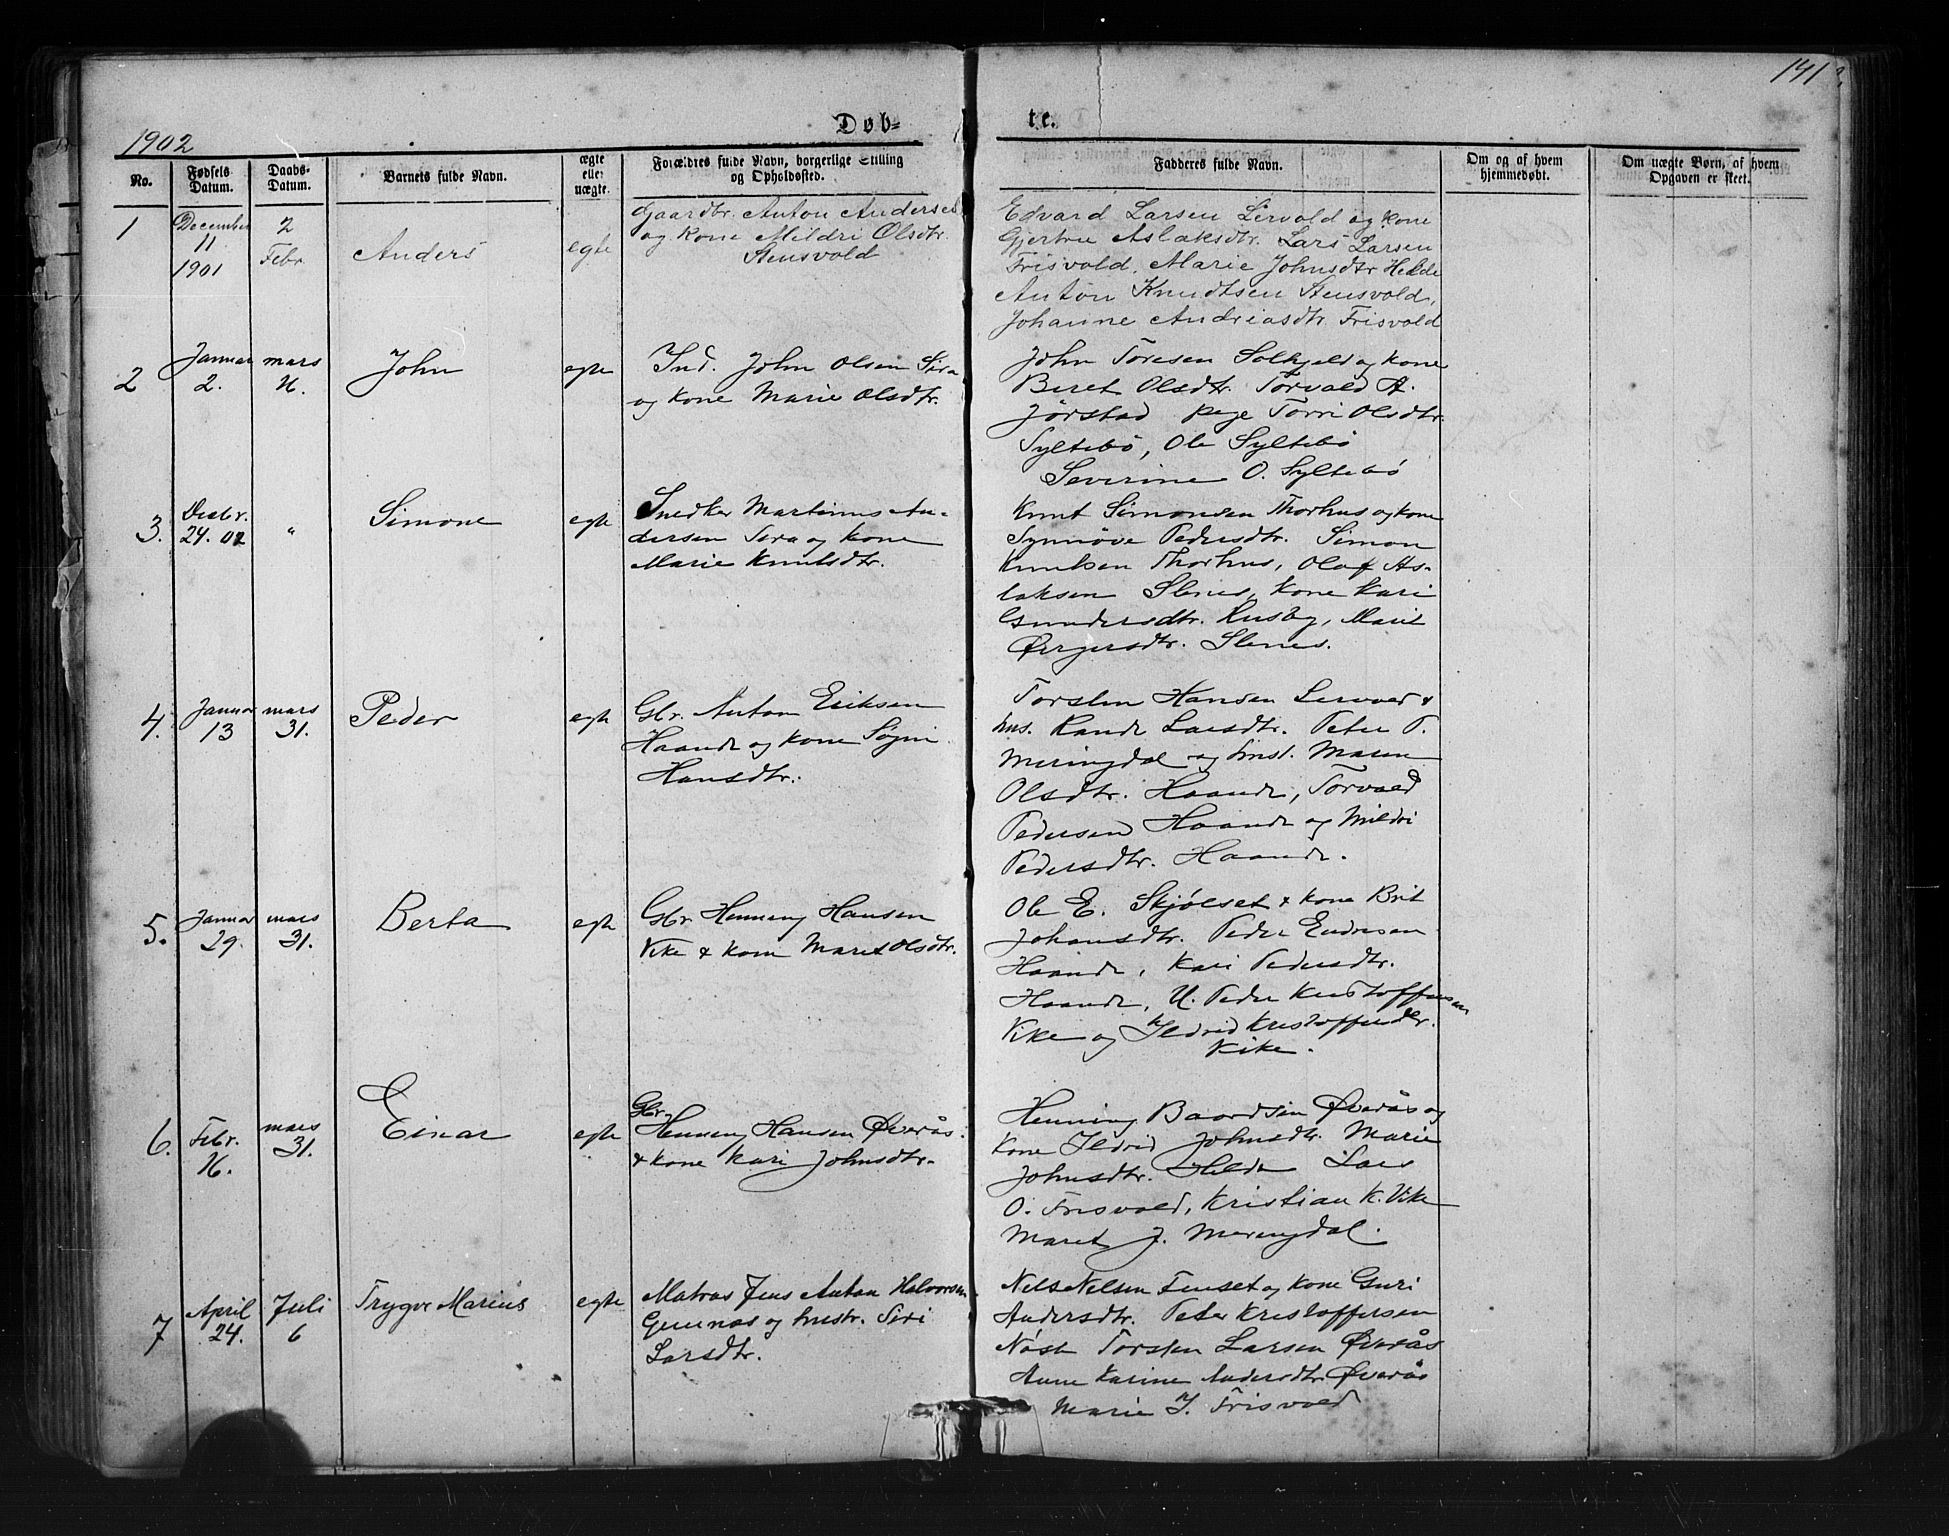 141
1902
Døb= te.
No.
Fødsels Datum.
Daabs-Datum.
Barnets fulde Navn.
ægte eller uægte.
Forældres fulde Navn, borgerlige Stilling og Opholdssted.
Fadderes fulde Navn.
Om og af hvem hjemmedøbt.
Om uægte Børn, af hvem Opgaven er skeet.
1
December 11 1901
2 Febr
Anders
egte
Gaardbr. Anton Andersen
og Kone Mildri Olsdtr.
Stensvold
Edvard Larsen Lervold og Kone
Gjertru Aslaksdtr. Lars Larsen
Frisvold. Marie Johnsdtr Helde
Anton Knudtsen Stensvold,
Johanne Andriasdtr Frisvold
2
Januar 2.
mars
John
egte
Ind. John Olsen Sira
og Kone Marie Olsdtr.
John Toresen Solhjeld og Kone
Beret Olsdtr. Torvald A.
Jørstad pige Torri Olsdtr.
Syltebö, Ole Syltebö
Severine O. Syltebö
3.
Desbr. 24. 01
"
Simone
egte
Snedker Martinus An-
dersen Sira og Kone
Marie Knutsdtr.
Knut Simonsen Thorhus og Kone
Synnøve Pedersdtr. Simon
Knutsen Thorhus, Olaf As-
laksen Slenes, Kone Kari
Gundersdtr. Husby, Marit
Slenes.
4.
Januar 13
mars 31.
Peder
egte
Gbr. Anton Eriksen
Haande og Kone
Hansdtr.
Torsten Hansen Lervold &
hus. Rande Larsdtr. Peter P.
Meringdal og Maren
Olsdtr. Haande, Torvald
Pedersen Haande og Mildri
Pedersdtr. Haande.
5.
Januar 29.
mars 31.
Berta
egte
Gbr. Henning Hansen
Vike & Kone Maret Olsdtr.
Ole E. Skjølset & Kone Brit
Johansdtr. Peder Endresen
Haande, Kari Pedersdtr.
Haande, U. Peder Kristoffersen
Vike og Ildrid Kristoffersdtr.
Vike.
6.
Febr. 16.
mars 31.
Einar
egte
Gbr.
Henning Hansen Øverås.
& Kone Kari Johnsdtr.
Henning Baardsen Øverås og
Kone Ildrid Johnsdtr. Marie
Johnsdtr. Helde Lars
O. Frisvold, Kristian K. Vike
Maret J. Meringdal.
7
April 24.
Juli 6
Trygve Marius
egte
Matros Jens Anton Halvorsen
og hustr. Siri
Larsdtr.
Nels Nelsen Finset og Kone Guri
Andersdtr. Peter Kristoffersen
Nöste Torsten Larsen Øverås
Anne Karine Andersdtr Øverås
Marie J. Frisvold